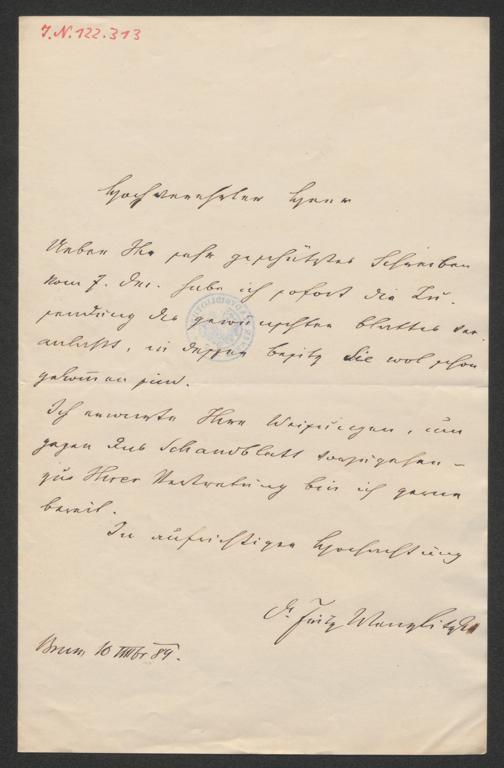 J.N. 122.313
Hochverehrter Herr
Ueber Ihr sehr geschätztes Schreiben
vom 7. Dec. habe ich sofort die Zu-
sendung des gewünschten Blattes ver-
anlaßt, in dessen Besitz Sie wol schon
gekommen sind.
Ich erwarte Ihre Weisungen, um
gegen das Schandblatt vorzugehen –
zur Ihrer Vertretung bin ich gerne
bereit.
In aufrichtiger Hochachtung
Dr. Fritz
Brünn 10 89.